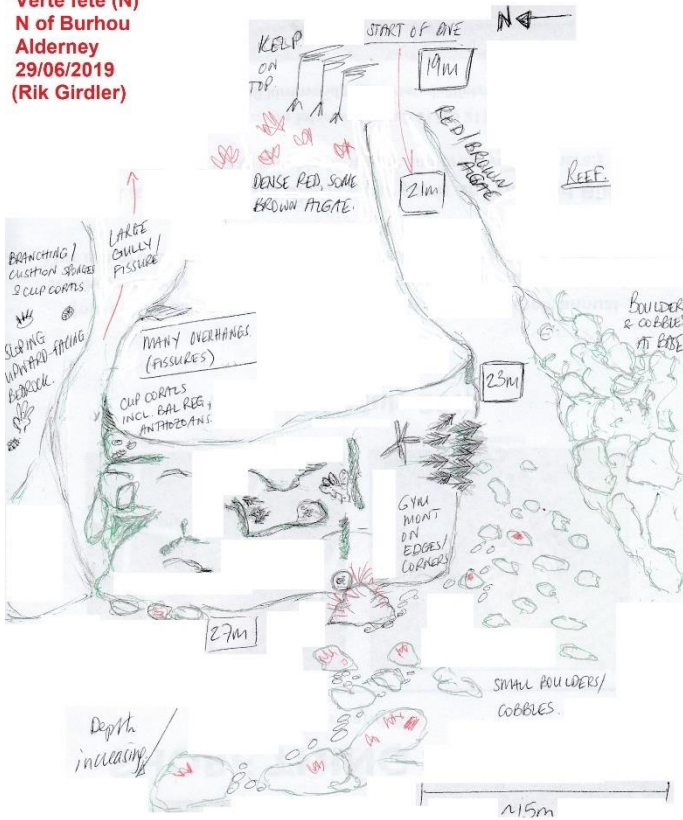 Verte Tete (N)
N of Burhou
Alderney
29/06/2019
(Rik Girdler)
KELP
ON
TOP.
START OF DIVE
N
19m
RED/BROWN
ALGAE
REEF.
DENSE RED, SOME
BROWN ALGAE.
21m
LARGE
GULLY/
FISSURE
BRANCHING/
CUSHION SPONGES
& CUP CORALS
SLOPING
UPWARD-FACING
BEDROCK.
MANY OVERHANGS
(FISSURES)
BOULDERS
& COBBLES
AT BASE
23m
CUP CORALS
INCL. BAL REG,
ANTHOZOANS.
GYM
MONT
ON
EDGES/
CORNERS
27m
SMALL BOULDERS/
COBBLES.
Depth
increasing
~15m